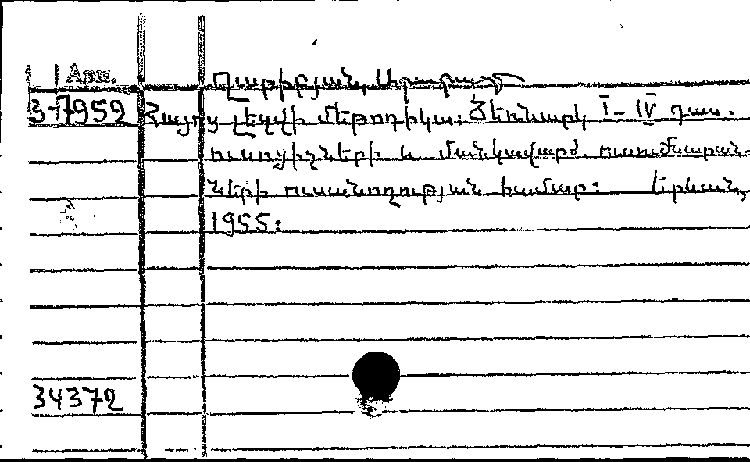 Арм.
Ղարիբյան, Արարատ
3-7959 Հայոց լեզվի մեթոդիկա: Ձեռնարկ I–IV դաս.
ուսուցիչների և մանկավարժ. ուսումնարան-
ների ուսանողության համար: Երևան,
1955:
34372